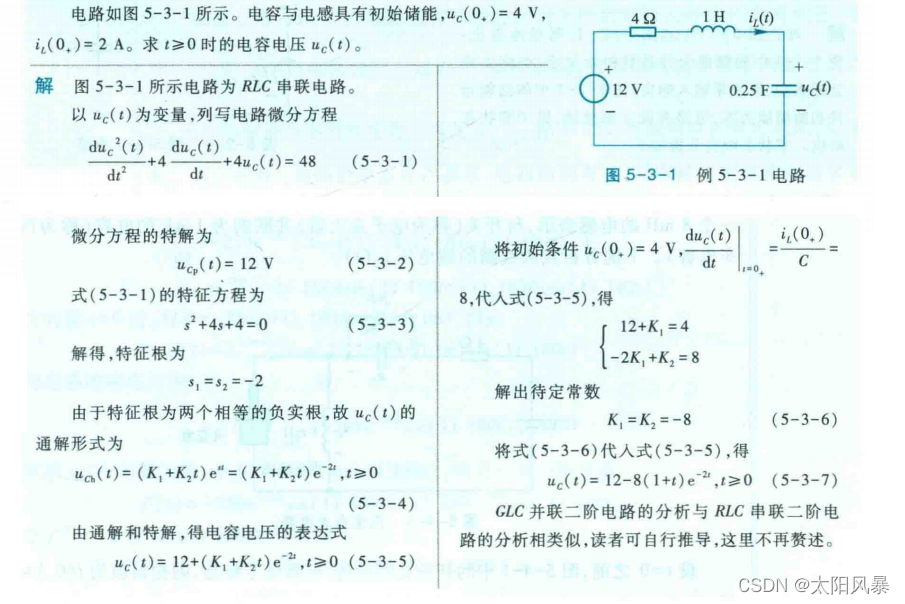 电路如图 5-3-1 所示。电容与电感具有初始储能,u_C(0₊)=4 V,
i_L(0₊)=2 A。求 t≥0 时的电容电压 u_C(t)。
解 图 5-3-1 所示电路为 RLC 串联电路。
以 u_C(t)为变量,列写电路微分方程
du_C²(t)/dt²+4 du_C(t)/dt+4u_C(t)=48 (5-3-1)
4 Ω 1 H i_L(t)
+ +
12 V 0.25 F u_C(t)
- -
图 5-3-1 例 5-3-1 电路
微分方程的特解为
u_Cp(t)=12 V (5-3-2)
式(5-3-1)的特征方程为
s²+4s+4=0 (5-3-3)
解得,特征根为
s₁=s₂=-2
由于特征根为两个相等的负实根,故 u_C(t)的
通解形式为
u_Ch(t)=(K₁+K₂t)e^st=(K₁+K₂t)e^-2t,t≥0
(5-3-4)
由通解和特解,得电容电压的表达式
u_C(t)=12+(K₁+K₂t)e^-2t,t≥0 (5-3-5)
将初始条件 u_C(0₊)=4 V, du_C(t)/dt |t=0₊ = i_L(0₊)/C =
8,代人式(5-3-5),得
{ 12+K₁=4
-2K₁+K₂=8
解出待定常数
K₁=K₂=-8 (5-3-6)
将式(5-3-6)代入式(5-3-5),得
u_C(t)=12-8(1+t)e^-2t,t≥0 (5-3-7)
GLC 并联二阶电路的分析与 RLC 串联二阶电
路的分析相类似,读者可自行推导,这里不再赘述。
CSDN @太阳风暴